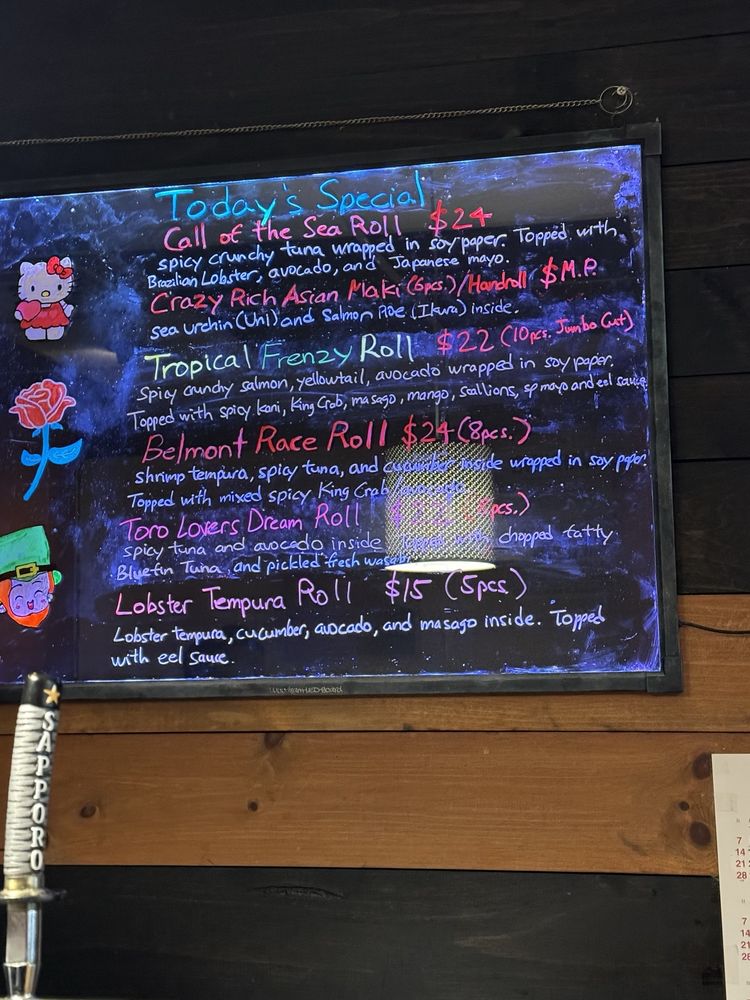 Today's Special
Call of the Sea Roll $24
spicy crunchy tuna wrapped in soy paper. Topped with
Brazilian Lobster, avocado, and Japanese mayo.
Crazy Rich Asian Maki (6pcs.)/Handroll $M.P.
sea urchin (Uni) and Salmon Roe (Ikura) inside.
Tropical Frenzy Roll $22 (10pcs. Jumbo Cut)
Spicy crunchy salmon, yellowtail, avocado wrapped in soy paper.
Topped with spicy kani, King Crab, masago, mango, scallions, sp mayo and eel sauce.
Belmont Race Roll $24 (8pcs.)
shrimp tempura, spicy tuna, and cucumber inside wrapped in soy paper.
Topped with mixed spicy King Crab, avocado.
Toro Lovers Dream Roll pcs.)
spicy tuna and avocado inside topped with chopped fatty
Bluefin Tuna, and pickled fresh wasabi.
Lobster Tempura Roll $15 (5pcs.)
Lobster tempura, cucumber, avocado, and masago inside. Topped
with eel sauce.
SAPPORO
7
14
21
28
7
14
21
28